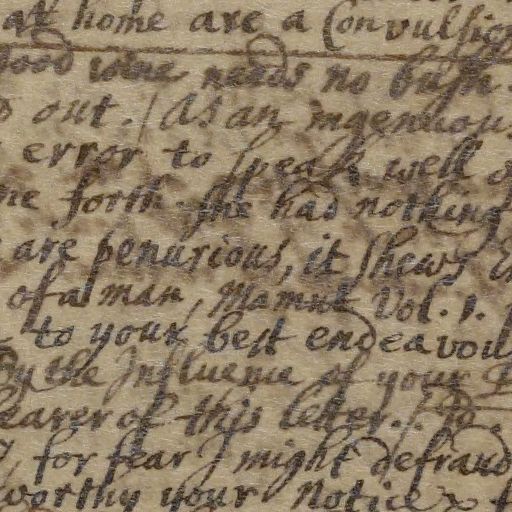 at home are a Convulsion
Good wine needs no bush.
out. / As an ingenuous
error to speak well o
me forth she had nothing
are penurious, it shews
of a man, Mamut Vol. 1.
to your best endeavou
By the Influence of your
bearer of this letter. / Id.
, for fear I might defraud
worthy your Notice &